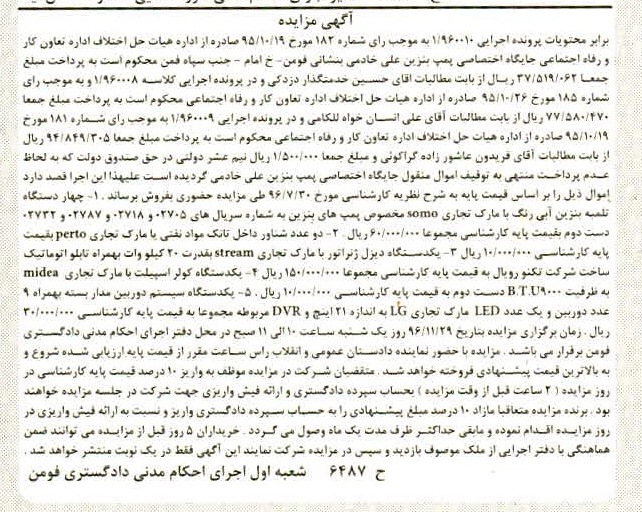 آگهی مزایده
برابر محتویات پرونده اجرایی ۱/۹۶۰۰۱۰ به موجب رای شماره ۱۸۲ مورخ ۹۵/۱۰/۱۹ صادره از اداره هیات حل اختلاف اداره تعاون کار
و رفاه اجتماعی جایگاه اختصاصی پمپ بنزین علی خادمی بنشانی فومن- خ امام - جنب سپاه فمن محکوم است به پرداخت مبلغ
جمعا ۳۷/۵۱۹/۰۶۲ ریال از بابت مطالبات اقای حسین خدمتگذار دزدکی و در پرونده اجرایی کلاسه ۱/۹۶۰۰۰۸ و به موجب رای
شماره ۱۸۵ مورخ ۹۵/۱۰/۲۶ صادره از اداره هیات حل اختلاف اداره تعاون کار و رفاه اجتماعی محکوم است به پرداخت مبلغ جمعا
۷۷/۵۸۰/۴۷۰ ریال از بابت مطالبات آقای علی انسان خواه للکامی و در پرونده اجرایی ۱/۹۶۰۰۰۹ به موجب رای شماره ۱۸۱ مورخ
۹۵/۱۰/۱۹ صادره از اداره هیات حل اختلاف اداره تعاون کار و رفاه اجتماعی محکوم است به پرداخت مبلغ جمعا ۹۴/۸۴۹/۳۰۵ ریال
از بابت مطالبات آقای فریدون عاشور زاده گراکوئی و مبلغ جمعا ۱/۵۰۰/۰۰۰ ریال نیم عشر دولتی در حق صندوق دولت که به لحاظ
عدم پرداخت منتهی به توقیف اموال منقول جایگاه اختصاصی پمپ بنزین علی خادمی گردیده است علیهذا این اجرا قصد دارد
اموال ذیل را بر اساس قیمت پایه به شرح نظریه کارشناسی مورخ ۹۶/۷/۳۰ طی مزایده حضوری بفروش برساند . ۱- چهار دستگاه
تلمبه بنزین آبی رنگ با مارک تجاری somo مخصوص پمپ های بنزین به شماره سریال های ۰۲۷۰۵ و ۰۲۷۱۸ و ۰۲۷۸۷ و ۰۲۷۳۲
دست دوم بقیمت پایه کارشناسی مجموعا ۶۰/۰۰۰/۰۰۰ ریال . ۲- دو عدد شناور داخل تانک مواد نفتی با مارک تجاری perto بقیمت
پایه کارشناسی ۱۰/۰۰۰/۰۰۰ ریال ۳- یکدستگاه دیزل ژنراتور با مارک تجاری stream بقدرت ۲۰ کیلو وات بهمراه تابلو اتوماتیک
ساخت شرکت تکنو رویال به قیمت پایه کارشناسی مجموعا ۱۵۰/۰۰۰/۰۰۰ ریال ۴- یکدستگاه کولر اسپیلت با مارک تجاری midea
به ظرفیت B.T.U۹۰۰۰ دست دوم به قیمت پایه کارشناسی ۱۰/۰۰۰/۰۰۰ ریال . ۵- یکدستگاه سیستم دوربین مدار بسته بهمراه ۹
عدد دوربین و یک عدد LED مارک تجاری LG به اندازه ۲۱ اینچ و DVR مربوطه مجموعا به قیمت پایه کارشناسی ۳۰/۰۰۰/۰۰۰
ریال . زمان برگزاری مزایده بتاریخ ۹۶/۱۱/۲۹ روز یک شنبه ساعت ۱۰ الی ۱۱ صبح در محل دفتر اجرای احکام مدنی دادگستری
فومن برقرار می باشد . مزایده با حضور نماینده دادستان عمومی و انقلاب راس ساعت مقرر از قیمت پایه ارزیابی شده شروع و
به بالاترین قیمت پیشنهادی فروخته خواهد شد . متقضیان شرکت در مزایده موظف به واریز ۱۰ درصد قیمت پایه کارشناسی در
روز مزایده ( ۲ ساعت قبل از وقت مزایده ) بحساب سپرده دادگستری و ارائه فیش واریزی جهت شرکت در جلسه مزایده خواهند
بود . برنده مزایده متعاقبا مازاد ۱۰ درصد مبلغ پیشنهادی را به حساب سپرده دادگستری واریز و نسبت به ارائه فیش واریزی در
روز مزایده اقدام نموده و مابقی حداکثر ظرف مدت یک ماه وصول می گردد . خریداران ۵ روز قبل از مزایده می توانند ضمن
هماهنگی با دفتر اجرایی از ملک موصوف بازدید و سپس در مزایده شرکت نمایند این آگهی فقط در یک نوبت منتشر خواهد شد .
ح ۶۴۸۷ شعبه اول اجرای احکام مدنی دادگستری فومن